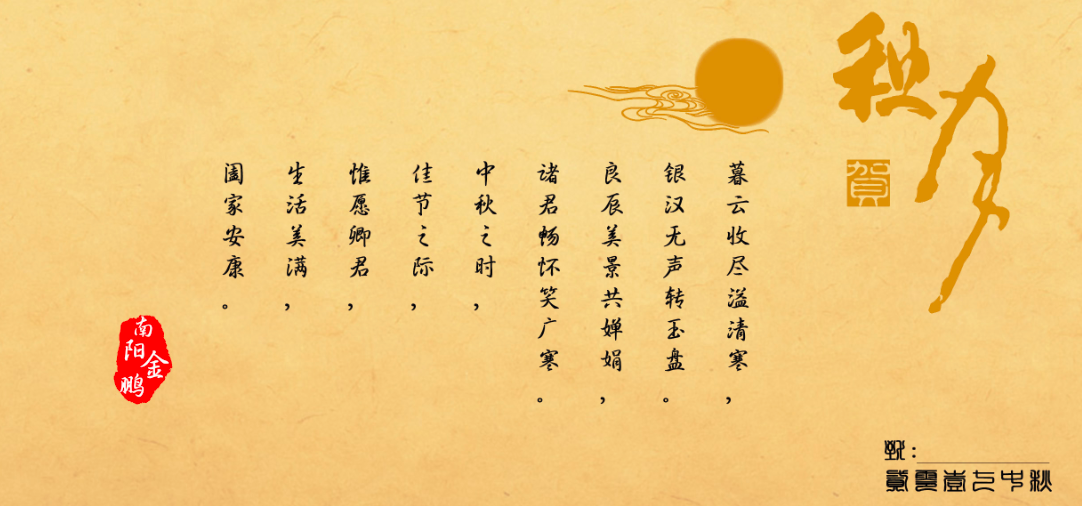 秋月
賀
暮云收尽溢清寒，
银汉无声转玉盘。
良辰美景共婵娟，
诸君畅怀笑广寒。
中秋之时，
佳节之际，
惟愿卿君，
生活美满，
阖家安康。
南阳金鹏
致：